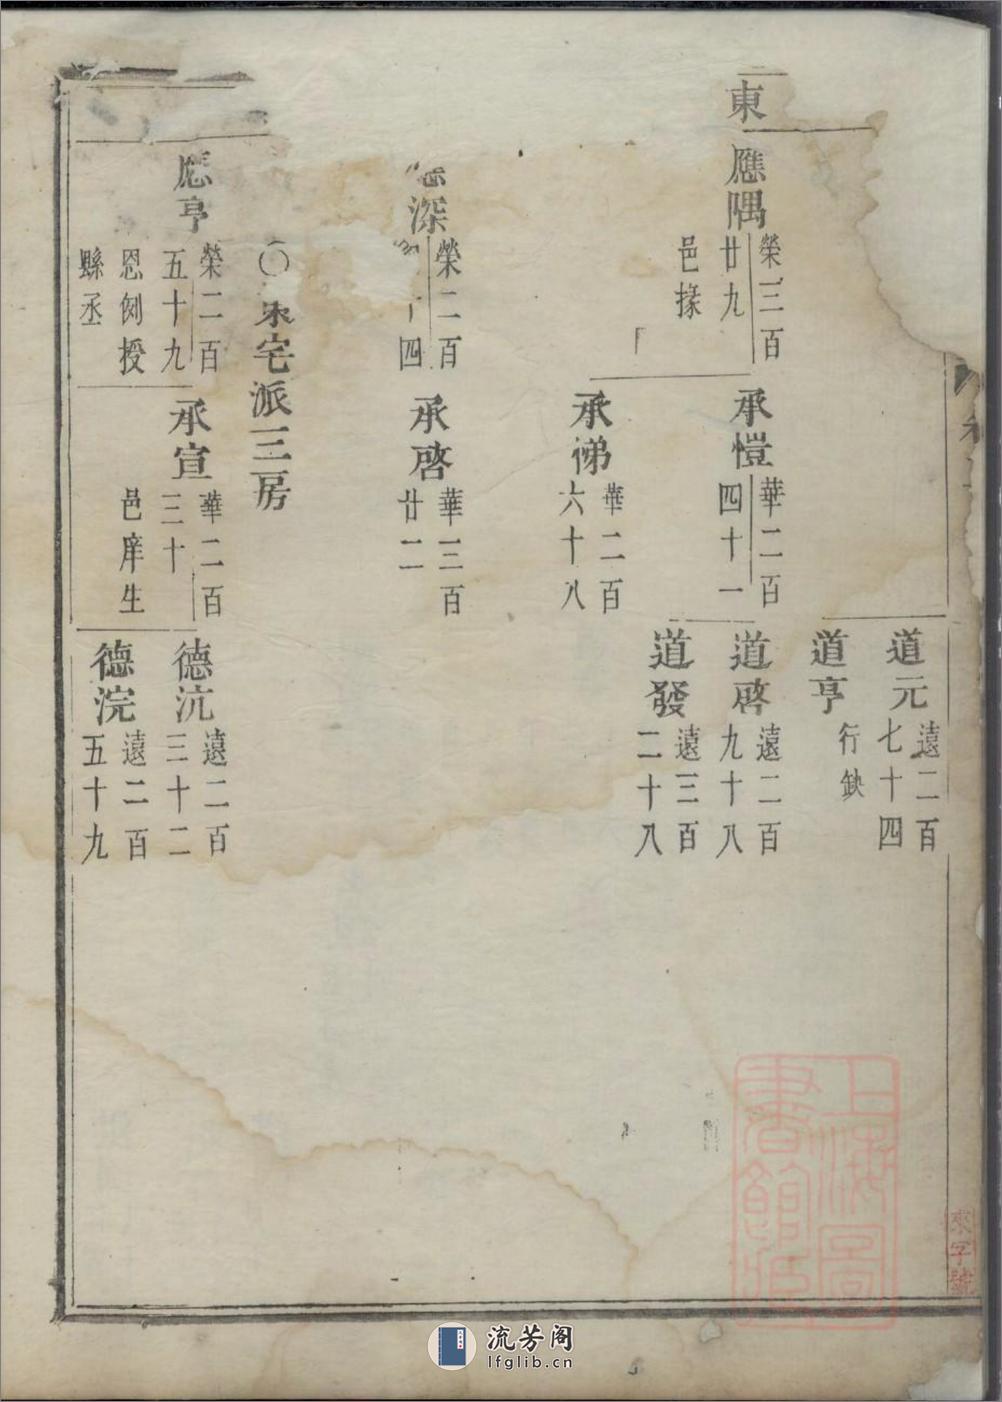 道元
遠二百
七十四
道亨
行缺
東
應隅
榮三百
廿九
邑掾
承愷
華二百
四十一
道啓
遠二百
九十八
道發
遠三百
二十八
承悌
華二百
六十八
深
榮二百
四
承啓
華三百
廿二
〇東宅派三房
應亨
榮二百
五十九
恩例授
縣丞
承宣
華二百
三十
邑庠生
德沆
遠二百
三十二
德浣
遠二百
五十九
上海圖
書館藏
來字號
流芳阁
lfglib.cn